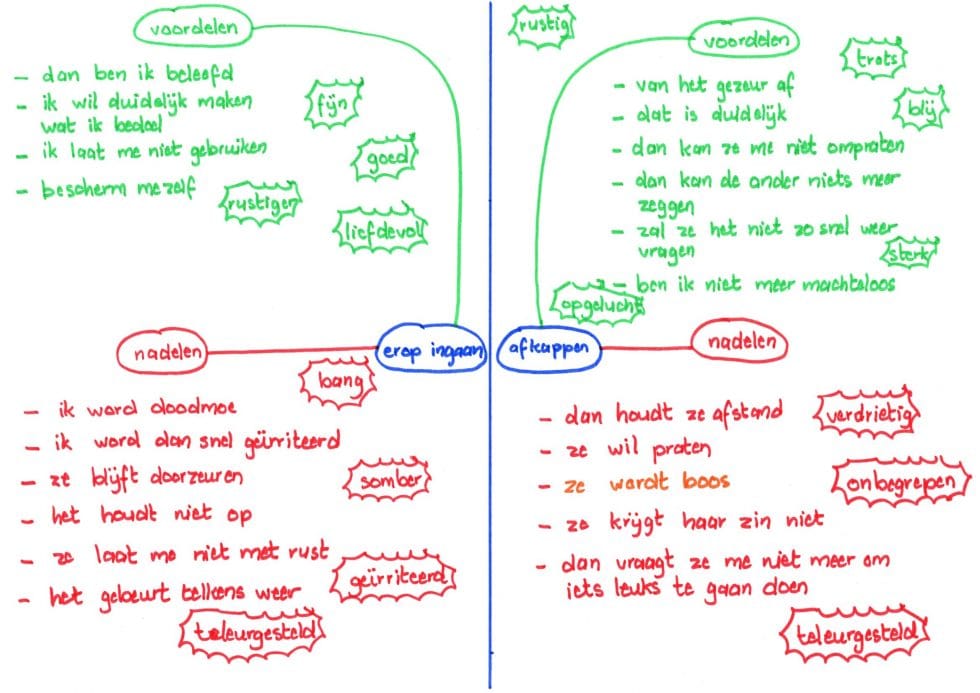 voordelen
- dan ben ik beleefd
- ik wil duidelijk maken
wat ik bedoel
- ik laat me niet gebruiken
- bescherm mezelf
fijn
goed
rustiger
liefdevol
erop ingaan
nadelen
bang
- ik word doodmoe
- ik word dan snel geïrriteerd
- ze blijft doorzeuren
- het houdt niet op
- ze laat me niet met rust
- het gebeurt telkens weer
somber
geïrriteerd
teleurgesteld
rustig
voordelen
trots
blij
- van het gezeur af
- dat is duidelijk
- dan kan ze me niet ompraten
- dan kan de ander niets meer
zeggen
- zal ze het niet zo snel weer
vragen
sterk
- ben ik niet meer machteloos
opgelucht
afkappen
nadelen
- dan houdt ze afstand
- ze wil praten
- ze wordt boos
- ze krijgt haar zin niet
- dan vraagt ze me niet meer om
iets leuks te gaan doen
verdrietig
onbegrepen
teleurgesteld